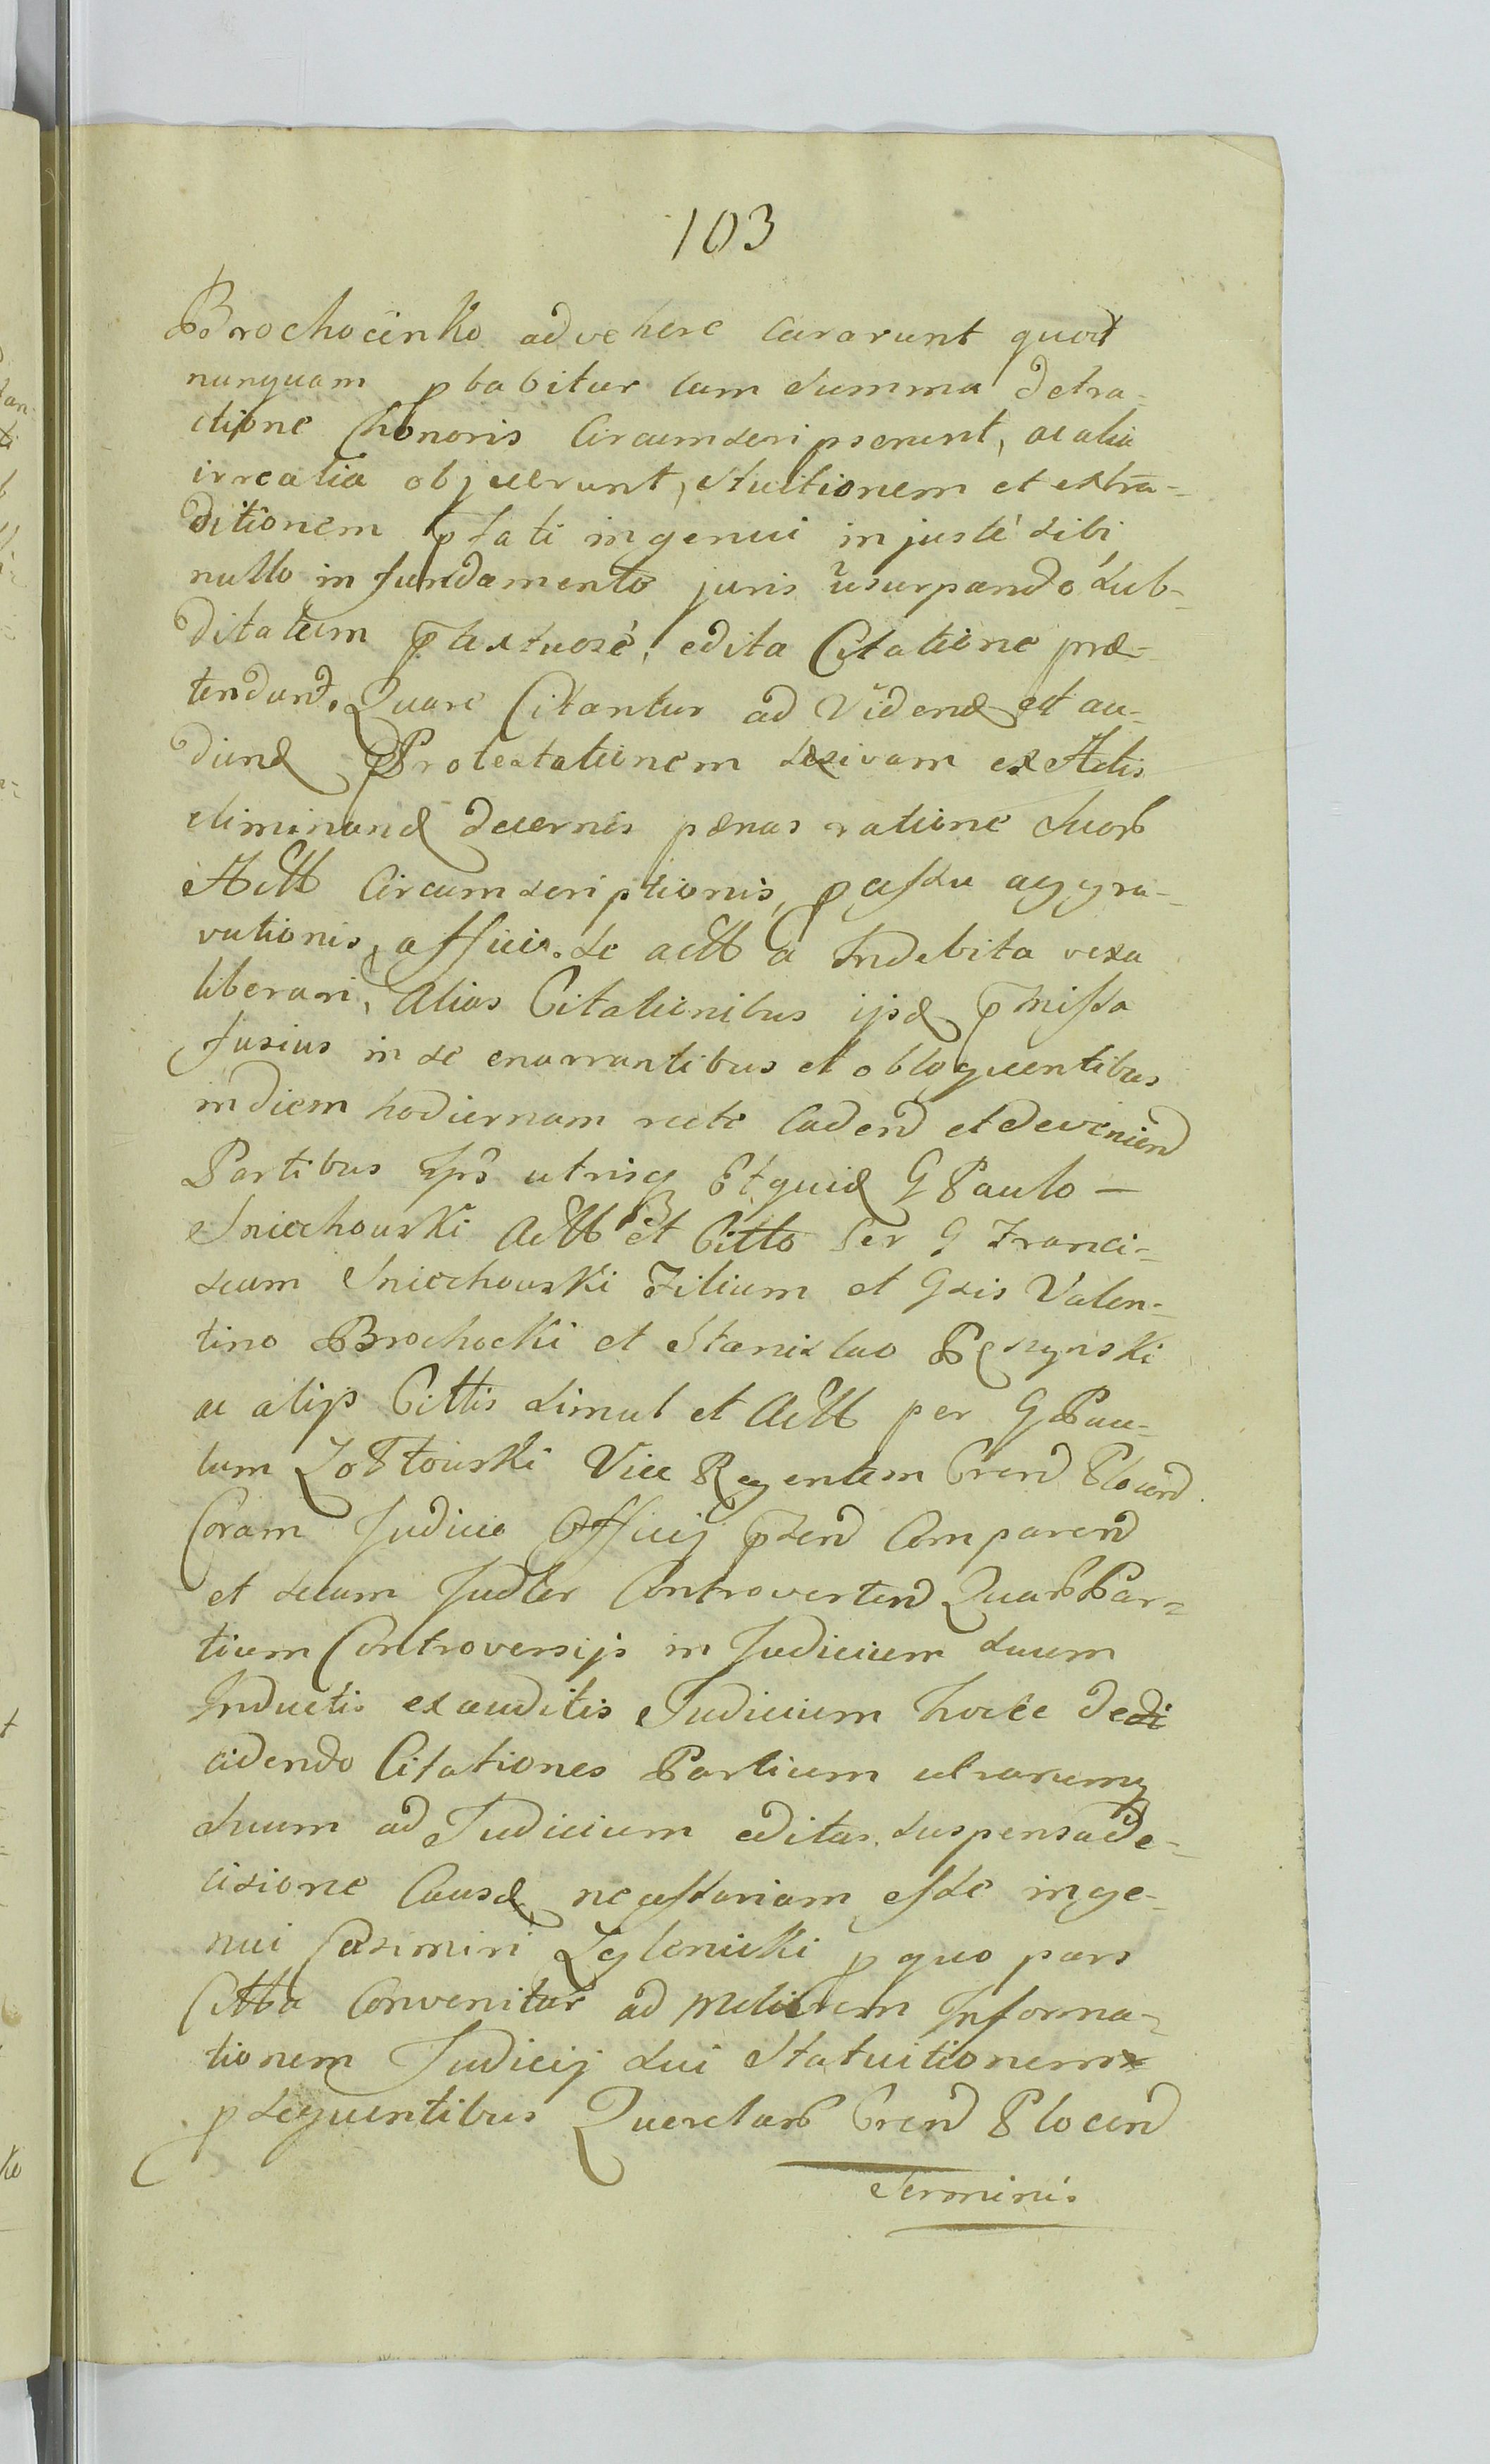 103
Brochocinko advehere curarunt quod
nunquam pbabitur cum summa detra-
ctione honoris Circumscripserunt, ac alia
irrealia objecerunt, Stuitionem et extra-
ditionem pfati ingenui injusté sibi
nullo in fundamento juris usurpando Sub-
ditatum ptextuosé, edita Citatione præ-
tendunt. Quare Citantur ad Videnđ et au-
dienđ Protestationem læsivam ex Actis
eliminanđ decernis pænas ratione suorb
Actt Circumscriptionis, pcessu aggra-
vationis, afficis. se actt a Indebita vexa
liberari, Alias Citationibus ipsæ pmissa
fusius in se enarrantibus et obloquentibus
in diem hodiernam recte Cadend et deveniend
Partibus Ips utrisq Et quidæ G Paulo —
Sniechowski Actt et Citto per G Franci-
scum Sniechowski Filium et Gsis Valen-
tino Brochocki et Stanislao Rzszynski
ac alijs Cittis simul et Actt per G Pau-
lum Zołtowski Vice Regentem Crend Plocend
Coram Judicio Officij psend Comparend
et secum Judler Controvertend Quarb Par-
tium Controversijs in Judicium suum
Inductis exauditis Judicium hocce dedi
cidendo Citationes Partium utrarumq
suum ad Judicium editas suspensa de-
cisione Causæ necessariam esse inge-
nui Casimiri Zglenicki p quo pars
Citta Convenitur ad Meliorem Informa-
tionem Judicij sui Statuitionem
psequentibus Querelarb Crend Plocend
Terminis